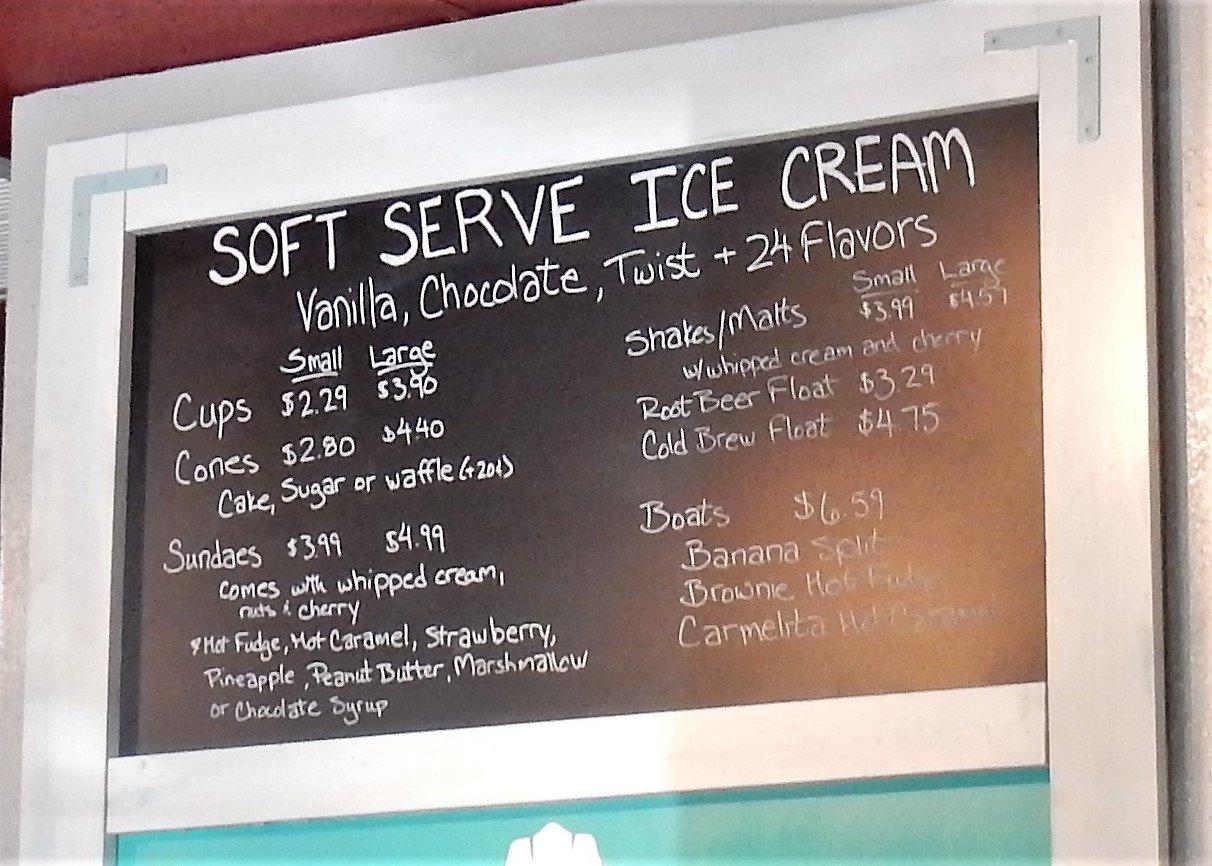 SOFT SERVE ICE CREAM
Vanilla, Chocolate, Twist + 24 Flavors
Small Large
Cups $2.29 $3.90
Cones $2.80 $4.40
Cake, Sugar or waffle (+20¢)
Sundaes $3.99 $4.99
comes with whipped cream,
nuts & cherry
Hot Fudge, Hot Caramel, Strawberry,
Pineapple, Peanut Butter, Marshmallow
or Chocolate Syrup
Small Large
Shakes/Malts $3.99
w/whipped cream and cherry
Root Beer Float $3.29
Cold Brew Float $4.75
Boats $6.59
Banana Split
Brownie Hot Fudge
Carmelita Hot Caramel